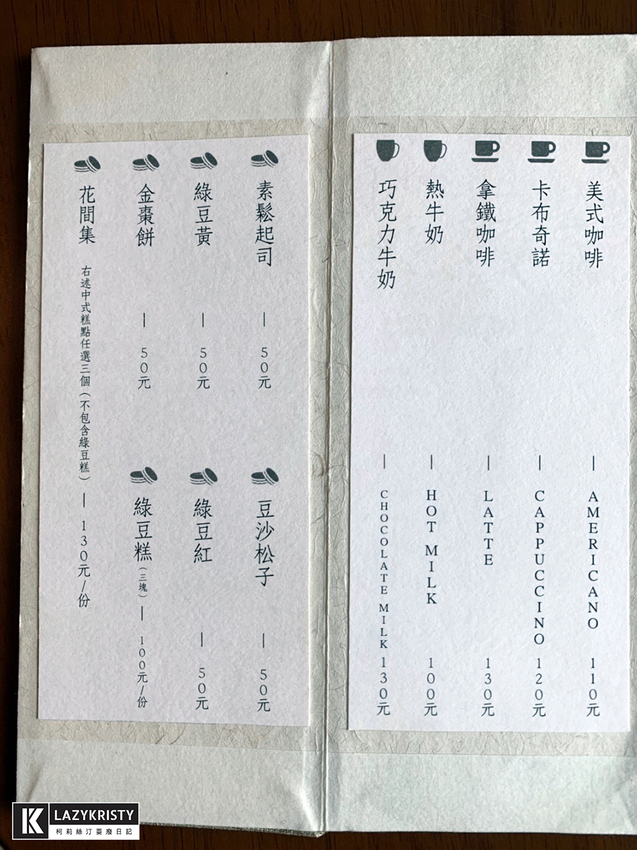 美式咖啡 — AMERICANO 110元
卡布奇諾 — CAPPUCCINO 120元
拿鐵咖啡 — LATTE 130元
熱牛奶 — HOT MILK 100元
巧克力牛奶 — CHOCOLATE MILK 130元
素鬆起司 — 50元
豆沙松子 — 50元
綠豆黃 — 50元
綠豆紅 — 50元
金棗餅 — 50元
綠豆糕(三塊) — 100元/份
花間集 右述中式糕點任選三個(不包含綠豆糕) — 130元/份
K LAZYKRISTY
柯莉絲汀耍廢日記